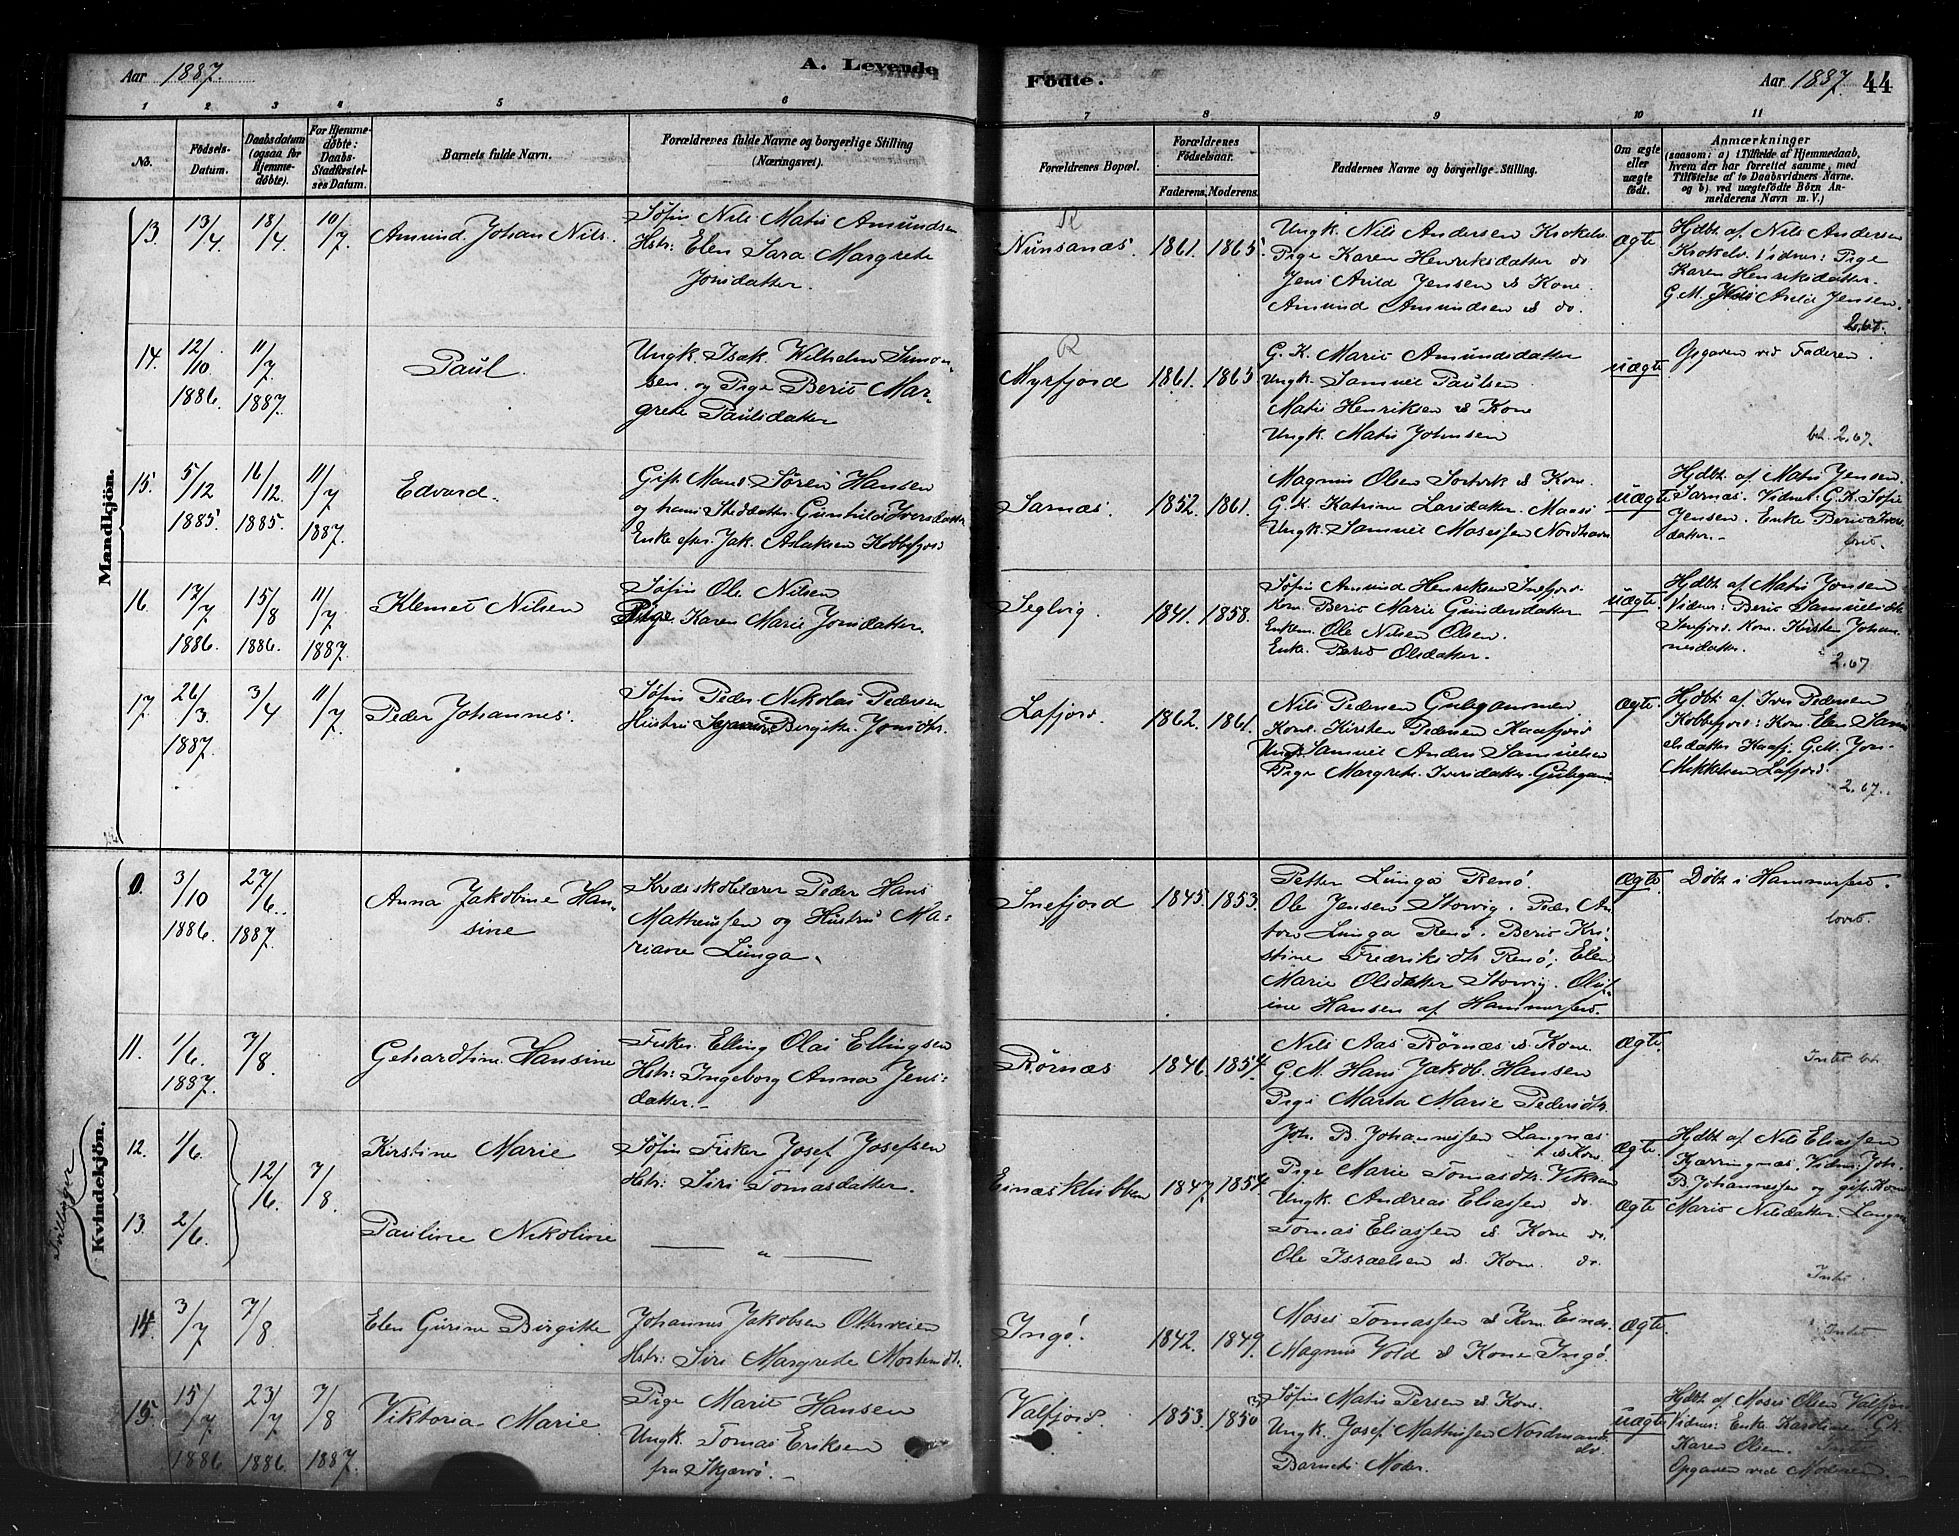 Aar 1887. A. Levende
Fødte. Aar 1887. 44
1 2 3 4 5 6 7 8 9 10 11
No.
Fødsels-
Datum.
Daabsdatum
(ogsaa for
Hjemme-
døbte).
For Hjemme-
døbte:
Daabs-
Stadfæstel-
ses Datum.
Barnets fulde Navn.
Forældrenes fulde Navne og borgerlige Stilling
(Næringsvei).
Forældrenes Bopæl.
Forældrenes
Fødselsaar.
Faderens. Moderens.
Faddernes Navne og borgerlige Stilling.
Om ægte
eller
uægte
født.
Anmærkninger
(saasom: a) i Tilfælde af Hjemmedaab,
hvem der har forrettet samme, med
Tilføielse af to Daabsvidners Navne.
og b) ved uægtefødte Børn An-
melderens Navn m. V.)
Mandkjön.
13. 13/4 18/4 10/7
Amund Johan Nils.
Søfin Nils Matis Amundsen
Hstr: Elen Sara Margrete
Jonsdatter.
R
Nunsanæs 1861. 1865.
Ungk. Nils Andersen Krokelv
Pige Karen Henriksdatter do
Jens Arild Jensen & Kone.
Amund Amundsen & do.
Ægte
Hjdbt. af Nils Andersen
Krokelv. Vidner: Pige
Karen Henriksdatter.
G.M. Jens Arild Jensen.
2.67.
14. 12/10 1886. 11/7 1887.
Paul.
Ungk. Isak Wilhelm Simon-
sen og Pige Berit Mar-
grete Paulsdatter
R
Myrfjord 1861. 1865
G. K. Marit Amundsdatter
Ungk. Samuel Paulsen
Matis Henriksen & Kone
Ungk. Matis Johnsen
uægte
Opgaven ved Faderen.
bet. 2.67.
15. 5/12 1885 16/12 1885. 11/7 1887.
Edvard.
Gift Mand Søren Hansen
og hans Steddatter Gunhild Iversdatter
Enke efter Jak. Aslaksen Kobbefjord
Sarnæs. 1852. 1861.
Magnus Olsen Sortvik & Kone.
G. K. Katrine Larsdatter Maasø
Ungk. Samuel Mosesen Nordhavn
uægte
Hjdbt. af Matis Jensen
Sarnæs. Vidner: G.K. Sofie
Jensen. Enke Berit Ivers-
datter.
16. 17/7 1886. 15/8 1886. 11/7 1887.
Klemet Nilsen
Søfin Ole Nilsen
Pige Karen Marie Jonsdatter.
Seglvig. 1841. 1858.
Søfin Amund Henriksen Snefjord
Kone Berit Marie Gundersdatter
Enkem. Ole Nilsen Olsen.
Enke Berit Olsdatter.
uægte
Hjdbt. af Matis Jonsen
Vidner: Berit Samuelsdtr
Snefjord. Kone Kirsten Johan-
nesdatter.
2.67
17. 26/3 1887. 3/4 11/7
Peder Johannes.
Søfin Peder Nikolai Pedersen
Hustru Birgitte Jonsdtr.
Lafjord. 1862. 1861.
Nils Pedersen Gulgammen
Kone Kirsten Pedersen Kaafjord
Ungk. Samuel Anders Samuelsen
Pige Margrete Iversdatter Gulgam
Ægte
Hjdbt. af Iver Pedersen
Kobbefjord: Kone Elen Samu-
elsdatter Kaafj. G.M. Jon
Mikkelsen Lafjord.
2.67.
Kvindekjön.
10. 3/10 1886. 27/6 1887.
Anna Jakobine Han-
sine
Kredsskolelærer Peder Hans
Matheussen og Hustru Ma-
riane Lunga.
Snefjord 1845. 1853.
Petter Lunga Renø.
Ole Jensen Storvig. Peder An-
ton Lunga Renø. Berit Kri-
stine Fredriksdtr. Renø; Elen
Marie Olsdatter Storvig. Olu-
ine Hansen af Hammerfest.
Ægte
Døbt i Hammerfest.
11. 1/6 1887. 7/8
Gehardtine Hansine
Fisker Elling Olai Ellingsen
Hstr: Ingeborg Anna Jens-
datter.
Rørnæs 1846. 1854.
Nils Aas Rørnæs & Kone.
G. M. Hans Jakob Hansen
Pige Marta Marie Pedersdtr.
Ægte.
Intet bt.
Tvillinger
12. 1/6 12/6 7/8
Kirstine Marie
Søfin Fisker Josef Josefsen
Hstr: Siri Tomasdatter.
13. 2/6
Pauline Nikoline
— „ —
Einæsklubben 1847. 1854.
Joh. B. Johannesen Langnæs
& Kone.
Pige Marie Tomasdtr.
Ungk. Andreas Eliassen do.
Tomas Eliassen & Kone do
Ole Israelsen & Kone. do.
Ægte.
Ægte
Hjdbt. af Nils Eliassen
Kjerringnæs. Vidner: Joh.
B. Johannesen og gift Kone
Marit Nilsdatter. Langnæs
Intet.
14. 3/7 7/8
Elen Gurine Birgitte
Johannes Jakobsen
Hstr: Siri Margrete Mortensdtr.
Ingø. 1842. 1849.
Moses Tomassen & Kone Einæs.
Magnus Vold & Kone Ingø.
Ægte.
Intet
15. 15/7 1886 23/7 1886. 7/8 1887.
Viktoria Marie
Pige Marit Hansen
Ungk. Tomas Eriksen
fra Skjærvø.
Valfjord. 1853. 1850
Søfin Matis Persen & Kone.
Ungk. Josef Mathisen Nordmand
do.
Barnets Moder.
uægte
Hjdbt. af Moses Olsen Valfjord
Vidner: Enke Karoline G.K.
Karen Olsen. Intet
Opgaven ved Moderen.